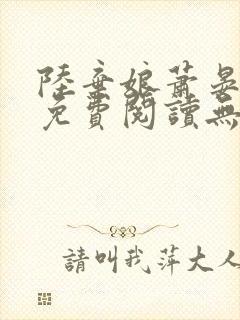 陸棄娘蕭晏
免費閱讀無
請叫我萍大人